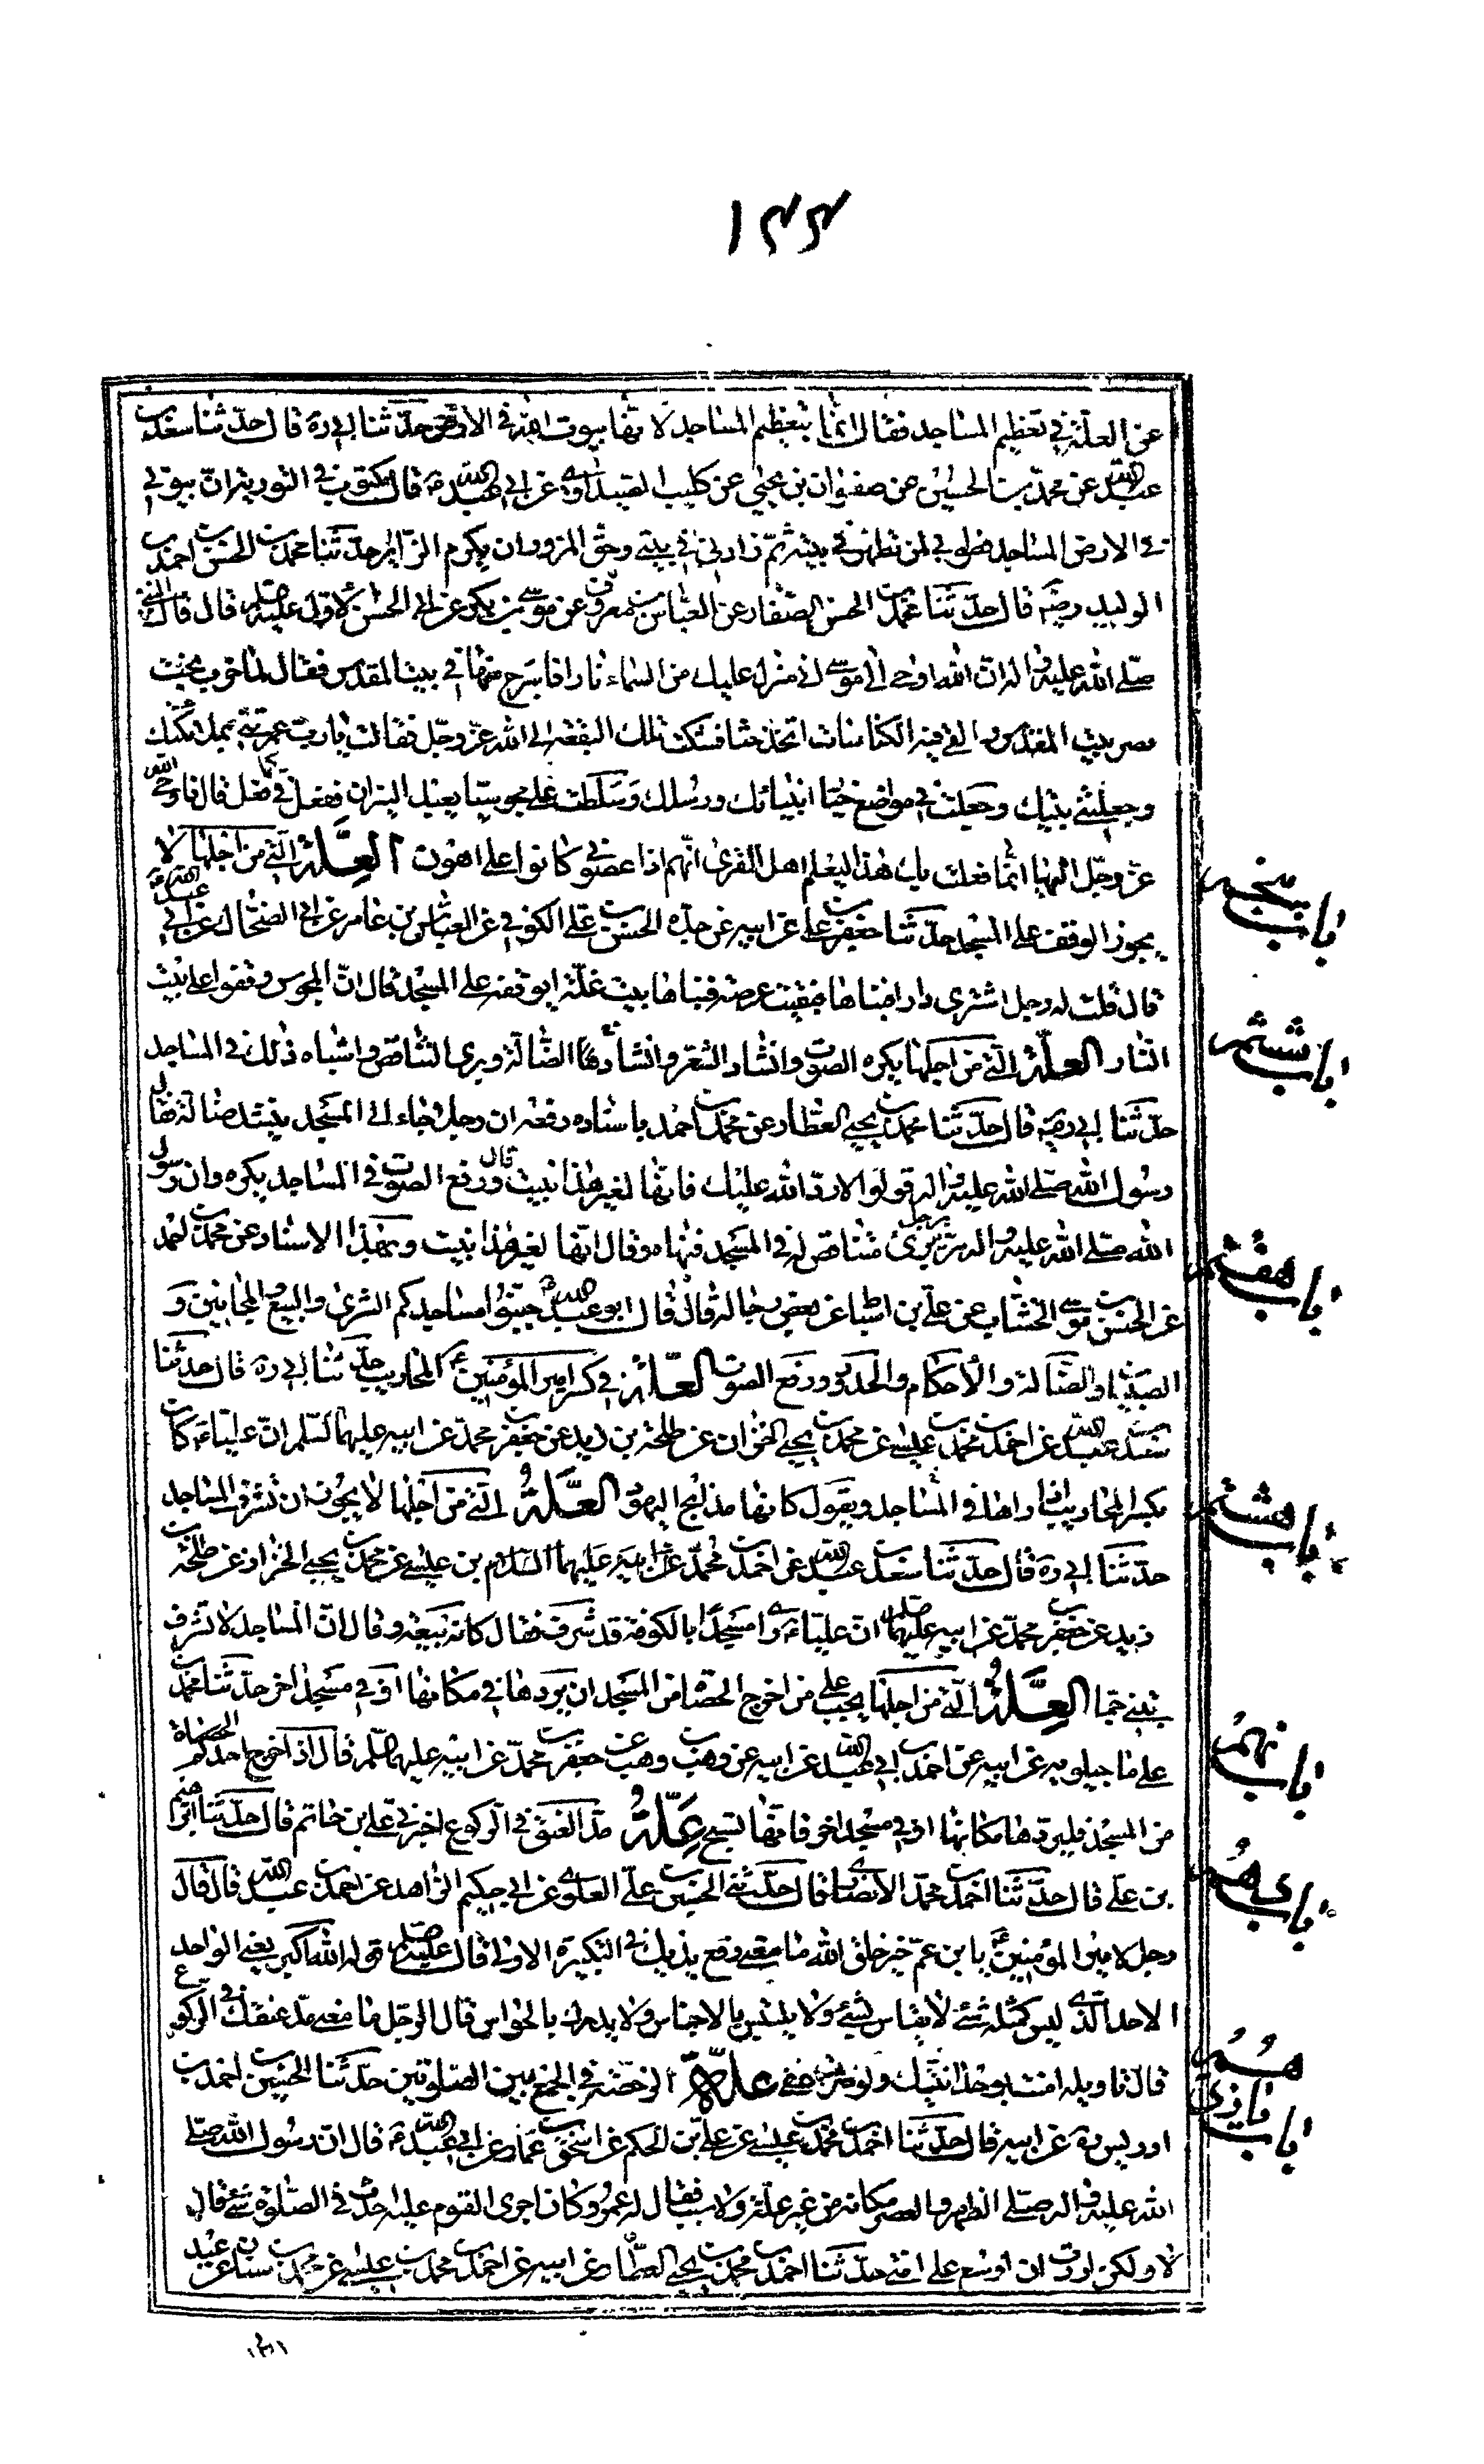 ١٣٤
عن العلة في تعظيم المساجد فقال انما بتعظيم المساجد لانها بيوت الله في الارض حدّثنا ابي ره قال حدّثنا سعد بن
عبد الله عن محمد بن الحسين عن صفوان بن يحيى عن كليب الصيداوي عن ابي عبد الله ع قال مكتوب في التورية ان بيوتي
في الارض المساجد فطوبى لمن تطهر في بيته ثم زارني في بيتي وحق المزور ان يكرم الزاير حدّثنا محمد بن الحسن بن احمد بن
الوليد رضه قال حدّثنا محمد بن الحسن الصفار عن العباس بن معروف عن موسى بن بكر عن ابي الحسن الاول عليه السلم قال قال النبي
صلى الله عليه واله ان الله اوحى الى موسى اني منزل عليك من السماء نارا فاسرج منها في بيت المقدس فقال لما خرب بخت
نصر بيت المقدس والقى فيه الكناسات اتخذ حشا فشكت تلك البقعة الى الله عز وجل فقالت يارب عمرتني بملائكتك
وجعلتني بيتك وجعلت في مواضع خيار انبيائك ورسلك وسلطت علي مجوسيا يعبد النيران ففعل بي ما فعل قال فاوحى الله
عز وجل اليها انما فعلت بك هذا ليعلم اهل القرى انهم اذا عصوني كانوا علي اهون العلة التي من اجلها لا
يجوز الوقف على المسجد حدّثنا جعفر بن علي عن ابيه عن جده الحسن بن علي الكوفي عن العباس بن عامر عن ابي الضحاك عن ابي عبد الله ع
قال قلت له رجل اشترى دارا فبناها فبقيت عرصة فبناها بيت غلة ايوقفه على المسجد قال ان المجوس وقفوا على بيت
النار العلة التي من اجلها يكره الصوت وانشاد الشعر وانشادها الضالة وبري المشاقص واشباه ذلك في المساجد
حدّثنا ابي رضه قال حدّثنا محمد بن يحيى العطار عن محمد بن احمد باسناده رفعه ان رجلا جاء الى المسجد ينشد ضالة له فقال
رسول الله صلى الله عليه واله قولوا لا رد الله عليك فانها لغير هذا بنيت قال ورفع الصوت في المساجد يكره وان رسول
الله صلى الله عليه واله مر برجل يبري مشاقص له في المسجد فنهاه وقال انها لغير هذا بنيت وبهذا الاسناد عن محمد بن احمد
عن الحسن بن موسى الخشاب عن علي بن اسباط عن بعض رجاله قال قال ابو عبد الله ع جنبوا مساجدكم الشرى والبيع والمجانين و
الصبيان والضالة والاحكام والحدود ورفع الصوت العلة في كسر امير المؤمنين ع المحاريب حدّثنا ابي ره قال حدّثنا
سعد بن عبد الله عن احمد بن محمد بن عيسى عن محمد بن يحيى الخزاز عن طلحة بن زيد عن جعفر بن محمد عن ابيه عليهما السلم ان عليا ع كان
يكسر المحاريب اذا راها في المساجد ويقول كانها مذابح اليهود العلة التي من اجلها لا يجوز ان تشرف المساجد
حدّثنا ابي ره قال حدّثنا سعد بن عبد الله عن احمد بن محمد عن ابيه عليهما السلام بن عيسى عن محمد بن يحيى الخزاز عن طلحة بن
زيد عن جعفر بن محمد عن ابيه عليهما السلم ان عليا ع راى مسجدا بالكوفة قد شرف فقال كانه بيعة وقال ان المساجد لا تشرف
تبنى جما العلة التي من اجلها يجب على من اخرج الحصا من المسجد ان يردها في مكانها او في مسجد اخر حدّثنا محمد بن
علي ماجيلويه عن ابيه عن احمد بن ابي عبد الله عن ابيه عن وهب بن وهب عن جعفر بن محمد عن ابيه عليهما السلم قال اذا اخرج احدكم الحصاة
من المسجد فليردها مكانها او في مسجد اخر فانها تسبح علة مد العنق في الركوع اخبرني علي بن حاتم قال حدّثنا ابراهيم
بن علي قال حدّثنا احمد بن محمد الانصاري قال حدّثني الحسين بن علي العلوي عن ابي حكيم الزاهد عن احمد بن عبد الله قال قال
رجل لامير المؤمنين ع يا بن عم خير خلق الله ما معنى رفع يديك في التكبيرة الاولى قال عليه السلم قوله الله اكبر يعني الواحد
الاحد الذي ليس كمثله شئ لا يقاس بشئ ولا يلتبس بالاجناس ولا يدرك بالحواس قال الرجل ما معنى مد عنقك في الركوع
قال تاويله امنت بوحدانيتك ولو ضربت عنقي علة الرخصة في الجمع بين الصلوتين حدّثنا الحسين بن احمد بن
ادريس ره عن ابيه قال حدّثنا احمد بن محمد بن عيسى عن علي بن الحكم عن اسحق بن عمار عن ابي عبد الله ع قال ان رسول الله صلى
الله عليه واله صلى الظهر والعصر مكانه من غير علة ولا سبب فقال له عمر وكان اجرى القوم عليه احدث في الصلوة شئ قال
لا ولكن اردت ان اوسع على امتي حدّثنا احمد بن محمد بن يحيى العطار عن ابيه عن احمد بن محمد بن عيسى عن محمد بن سنان عن عبد
باب پنجم
باب ششم
باب هفتم
باب هشتم
باب نهم
باب دهم
باب يازدهم